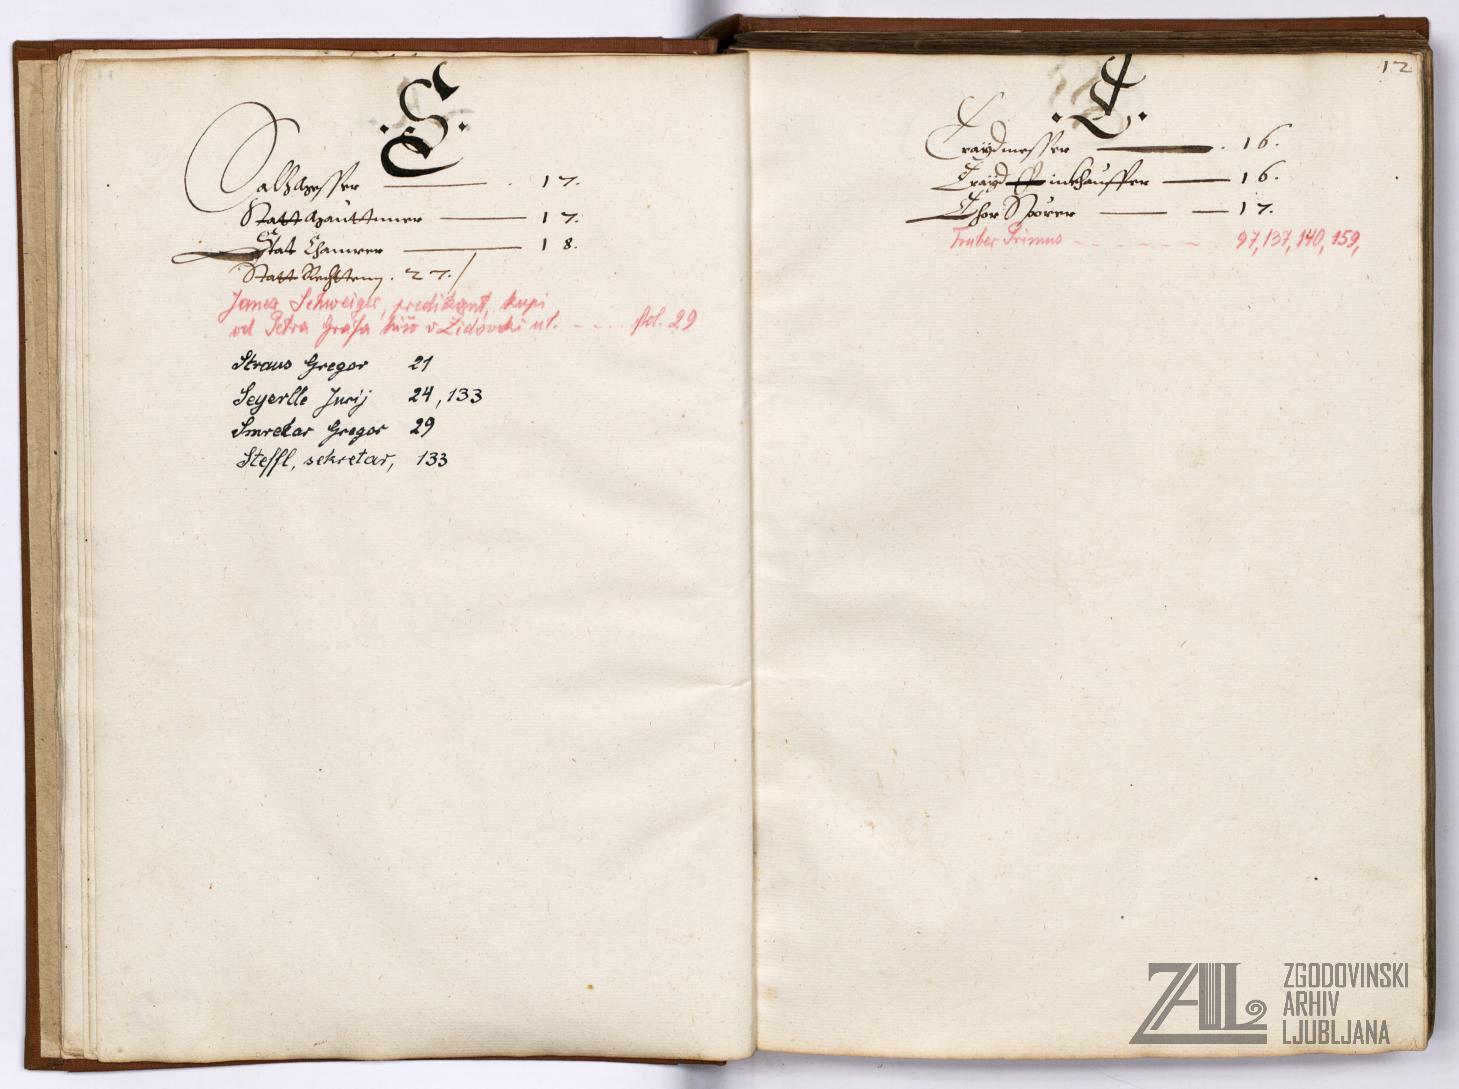 .S.
Salzmesser 17.
Statthaubttmer 17.
Stat Chamrer 18.
Statt Rechtten. 27.
Janez Schweiger, predikant, kupi
od Petra Grafa hišo v Židovski ul. - - - - fol. 29
Straus Gregor 21
Seyerlle Jurij 24, 133
Smrekar Gregor 29
Steffl, sekretar, 133
12
.T.
Traydmesser 16.
Trayd Einkhauffer 16.
Thor Spörer 17.
Truber Primus - - - - - - 97, 137, 140, 159,
ZAL ZGODOVINSKI
ARHIV
LJUBLJANA